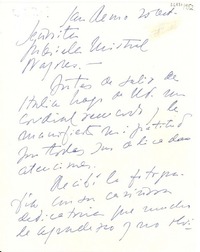 San Remo 20 oct
Señorita
Gabriela Mistral
Nápoles.—
Antes de salir de
Italia hago de Ud. un
cordial recuerdo y le
manifiesto mi gratitud
por todas sus delicadas
atenciones.
Recibí la fotogra-
fía con su cariñosa
dedicatoria que mucho
le agradezco y no